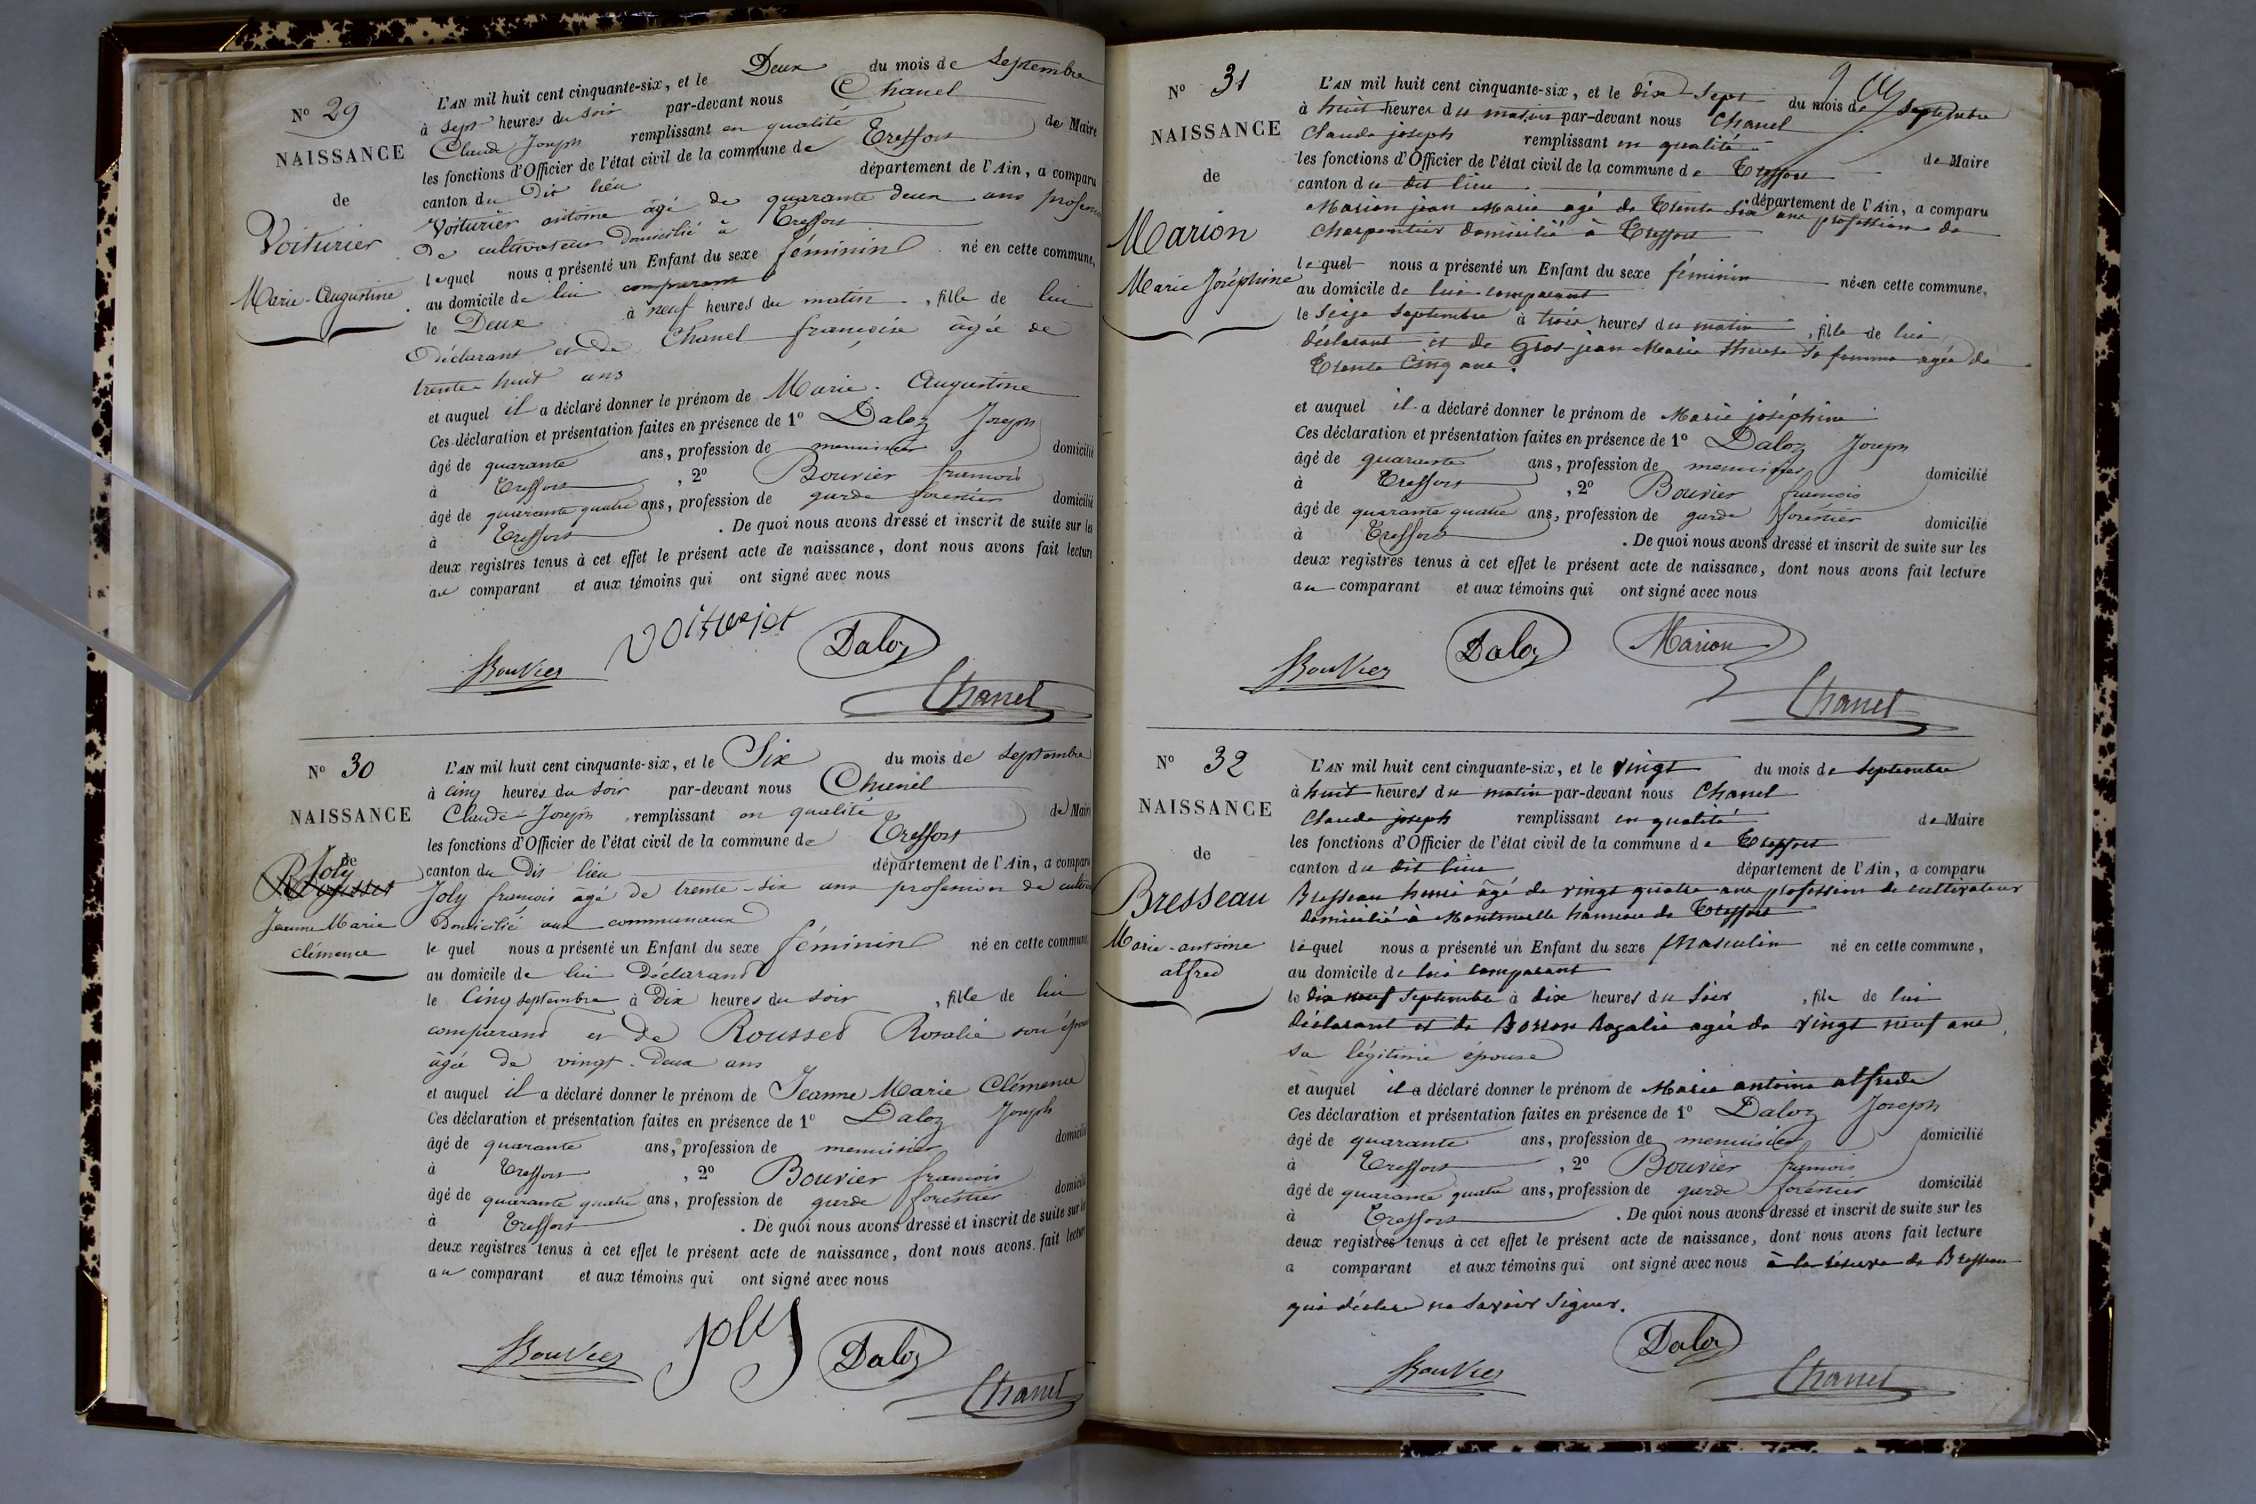 N° 29
NAISSANCE
de
Voiturier
Marie-Augustine
L'AN mil huit cent cinquante-six, et le Deux du mois de Septembre
à sept heures du soir par-devant nous Chanel
Claude Joseph remplissant en qualité de Maire
les fonctions d'Officier de l'état civil de la commune de Treffort
canton du Dit lieu département de l'Ain, a comparu
Voiturier antoine âgé de quarante deux ans profession
de cultivateur domicilié à Treffort
lequel nous a présenté un Enfant du sexe féminin né en cette commune,
au domicile de lui comparant
le Deux à neuf heures du matin, fille de lui
Déclarant et de Chanel françoise âgée de
trente-huit ans
et auquel il a déclaré donner le prénom de Marie-Augustine
Ces déclaration et présentation faites en présence de 1° Daloz Joseph
âgé de quarante ans, profession de menuisier domicilié
à Treffort, 2° Bouvier francois
âgé de quarante quatre ans, profession de garde forestier domicilié
à Treffort. De quoi nous avons dressé et inscrit de suite sur les
deux registres tenus à cet effet le présent acte de naissance, dont nous avons fait lecture
au comparant et aux témoins qui ont signé avec nous
Bouvier Daloz
Chanel
N° 30
NAISSANCE
de
Joly
Rousset
Jeanne Marie
clémence
L'AN mil huit cent cinquante-six, et le Six du mois de septembre
à cinq heures du soir par-devant nous Chanel
Claude-Joseph remplissant en qualité de Maire
les fonctions d'Officier de l'état civil de la commune de Treffort
canton du Dit lieu département de l'Ain, a comparu
Joly francois âgé de trente-six ans profession de
Domicilié aux communaux
le quel nous a présenté un Enfant du sexe féminin né en cette commune,
au domicile de lui Déclarant
le Cinq septembre à Dix heures du soir, fille de lui
comparant et de Rousset Rosalie son
âgée de vingt-deux ans
et auquel il a déclaré donner le prénom de Jeanne Marie Clémence
Ces déclaration et présentation faites en présence de 1° Daloz Joseph
âgé de quarante ans, profession de menuisier domicilié
à Treffort, 2° Bouvier francois
âgé de quarante quatre ans, profession de garde forestier domicilié
à Treffort. De quoi nous avons dressé et inscrit de suite sur les
deux registres tenus à cet effet le présent acte de naissance, dont nous avons fait lecture
au comparant et aux témoins qui ont signé avec nous
Bouvier joly Daloz
Chanel
N° 31
NAISSANCE
de
Marion
Marie Joséphine
L'AN mil huit cent cinquante-six, et le dix-Sept du mois de Septembre
à huit heures du matin par-devant nous Chanel
Claude joseph remplissant en qualité de Maire
les fonctions d'Officier de l'état civil de la commune de Treffort
canton du dit lieu département de l'Ain, a comparu
Marion jean Marie agé de Trente Six ans profession de
Charpentier domicilié à Treffort
le quel nous a présenté un Enfant du sexe féminin née en cette commune,
au domicile de lui comparant
le Seize Septembre à trois heures du matin, fille de lui
déclarant et de Gros jean Marie therese Sa femme agée de
Trente Cinq ans.
et auquel il a déclaré donner le prénom de Marie joséphine
Ces déclaration et présentation faites en présence de 1° Daloz Joseph
âgé de quarante ans, profession de menuisier domicilié
à Treffort, 2° Bouvier francois
âgé de quarante quatre ans, profession de garde forestier domicilié
à Treffort. De quoi nous avons dressé et inscrit de suite sur les
deux registres tenus à cet effet le présent acte de naissance, dont nous avons fait lecture
au comparant et aux témoins qui ont signé avec nous
Bouvier Daloz Marion
Chanel
N° 32
NAISSANCE
de
Bresseau
Marie-antoine
alfred
L'AN mil huit cent cinquante-six, et le vingt du mois de Septembre
à huit heures du matin par-devant nous Chanel
Claude joseph remplissant en qualité de Maire
les fonctions d'Officier de l'état civil de la commune de Treffort
canton du dit lieu département de l'Ain, a comparu
Bresseau henri âgé de vingt quatre ans profession de cultivateur
domicilié à Montmerle hameau de Treffort
le quel nous a présenté un Enfant du sexe Masculin né en cette commune,
au domicile de lui comparant
le dix neuf Septembre à dix heures du Soir, fils de lui
déclarant et de Bosson Rozalie agée de vingt neuf ans,
sa légitime épouse
et auquel il a déclaré donner le prénom de Marie antoine alfrede
Ces déclaration et présentation faites en présence de 1° Daloz Joseph
âgé de quarante ans, profession de menuisier domicilié
à Treffort, 2° Bouvier francois
âgé de quarante quatre ans, profession de garde forestier domicilié
à Treffort. De quoi nous avons dressé et inscrit de suite sur les
deux registres tenus à cet effet le présent acte de naissance, dont nous avons fait lecture
a comparant et aux témoins qui ont signé avec nous à la réserve de Bresseau
qui déclare ne Savoir Signer.
Bouvier Daloz
Chanel